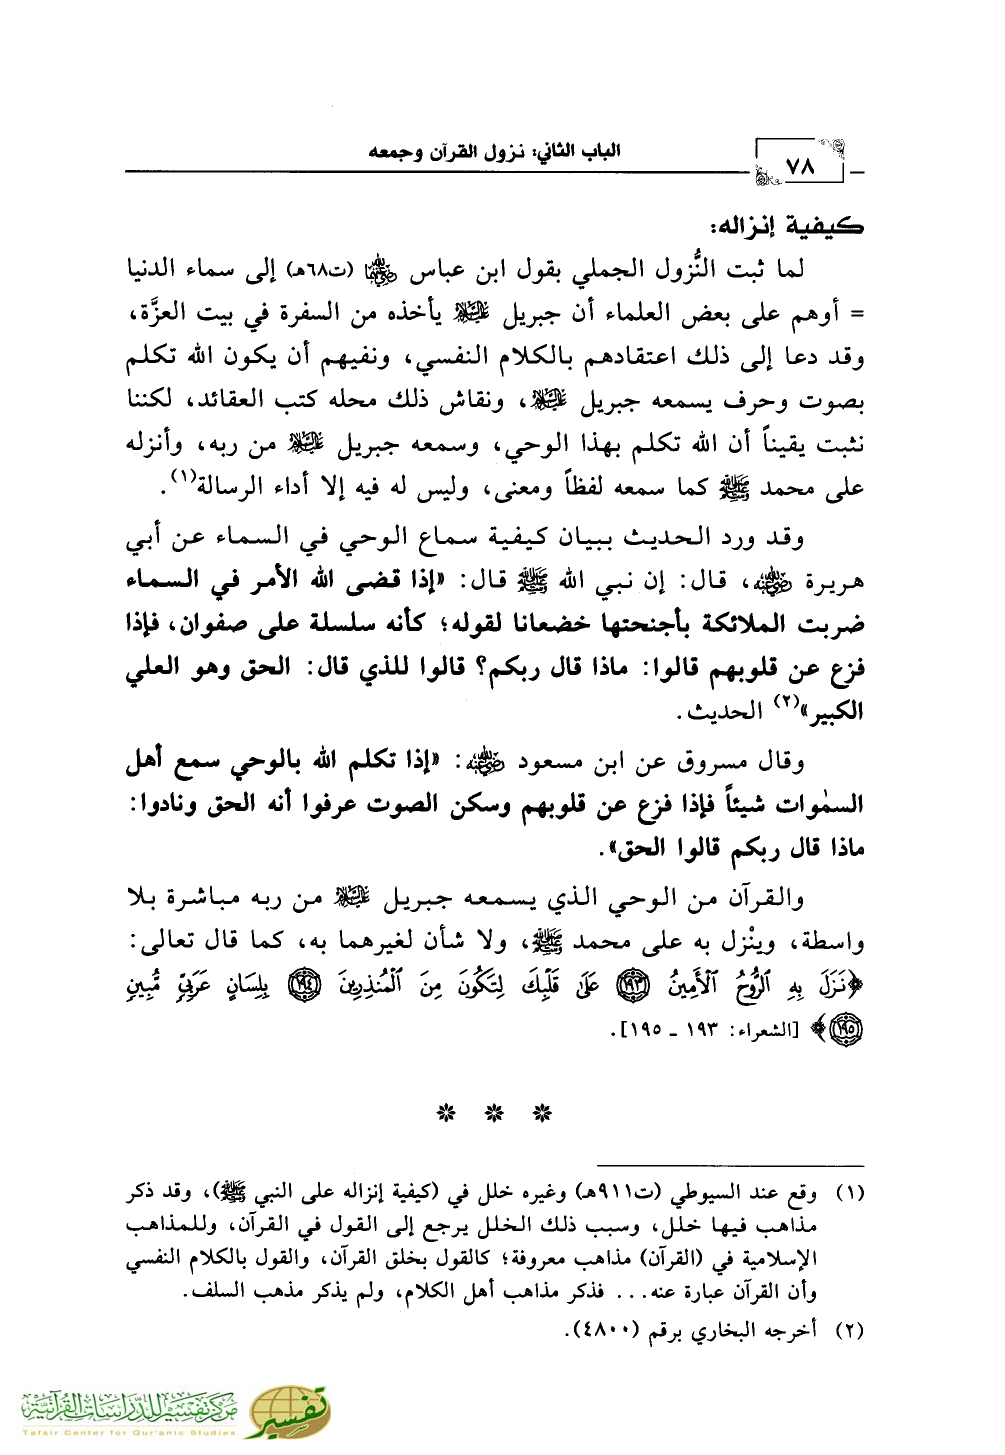 ٧٨
الباب الثاني: نزول القرآن وجمعه
كيفية إنزاله:
لما ثبت النُّزول الجملي بقول ابن عباس رضي الله عنهما (ت٦٨هـ) إلى سماء الدنيا
= أوهم على بعض العلماء أن جبريل عليه السلام يأخذه من السفرة في بيت العزَّة،
وقد دعا إلى ذلك اعتقادهم بالكلام النفسي، ونفيهم أن يكون الله تكلم
بصوت وحرف يسمعه جبريل عليه السلام، ونقاش ذلك محله كتب العقائد، لكننا
نثبت يقيناً أن الله تكلم بهذا الوحي، وسمعه جبريل عليه السلام من ربه، وأنزله
على محمد ﷺ كما سمعه لفظاً ومعنى، وليس له فيه إلا أداء الرسالة(١).
وقد ورد الحديث ببيان كيفية سماع الوحي في السماء عن أبي
هريرة رضي الله عنه، قال: إن نبي الله ﷺ قال: «إذا قضى الله الأمر في السماء
ضربت الملائكة بأجنحتها خضعانا لقوله؛ كأنه سلسلة على صفوان، فإذا
فزع عن قلوبهم قالوا: ماذا قال ربكم؟ قالوا للذي قال: الحق وهو العلي
الكبير»(٢) الحديث.
وقال مسروق عن ابن مسعود رضي الله عنه: «إذا تكلم الله بالوحي سمع أهل
السمٰوات شيئاً فإذا فزع عن قلوبهم وسكن الصوت عرفوا أنه الحق ونادوا:
ماذا قال ربكم قالوا الحق».
والقرآن من الوحي الذي يسمعه جبريل عليه السلام من ربه مباشرة بلا
واسطة، وينْزل به على محمد ﷺ، ولا شأن لغيرهما به، كما قال تعالى:
﴿نَزَلَ بِهِ ٱلرُّوحُ ٱلْأَمِينُ ١٩٣ عَلَىٰ قَلْبِكَ لِتَكُونَ مِنَ ٱلْمُنذِرِينَ ١٩٤ بِلِسَانٍ عَرَبِيٍّ مُّبِينٍ
١٩٥﴾ [الشعراء: ١٩٣ ـ ١٩٥].
(١) وقع عند السيوطي (ت٩١١هـ) وغيره خلل في (كيفية إنزاله على النبي ﷺ)، وقد ذكر
مذاهب فيها خلل، وسبب ذلك الخلل يرجع إلى القول في القرآن، وللمذاهب
الإسلامية في (القرآن) مذاهب معروفة؛ كالقول بخلق القرآن، والقول بالكلام النفسي
وأن القرآن عبارة عنه... فذكر مذاهب أهل الكلام، ولم يذكر مذهب السلف.
(٢) أخرجه البخاري برقم (٤٨٠٠).
مركز تفسير للدراسات القرآنية
تفسير
Tafsir Center for Qur'anic Studies